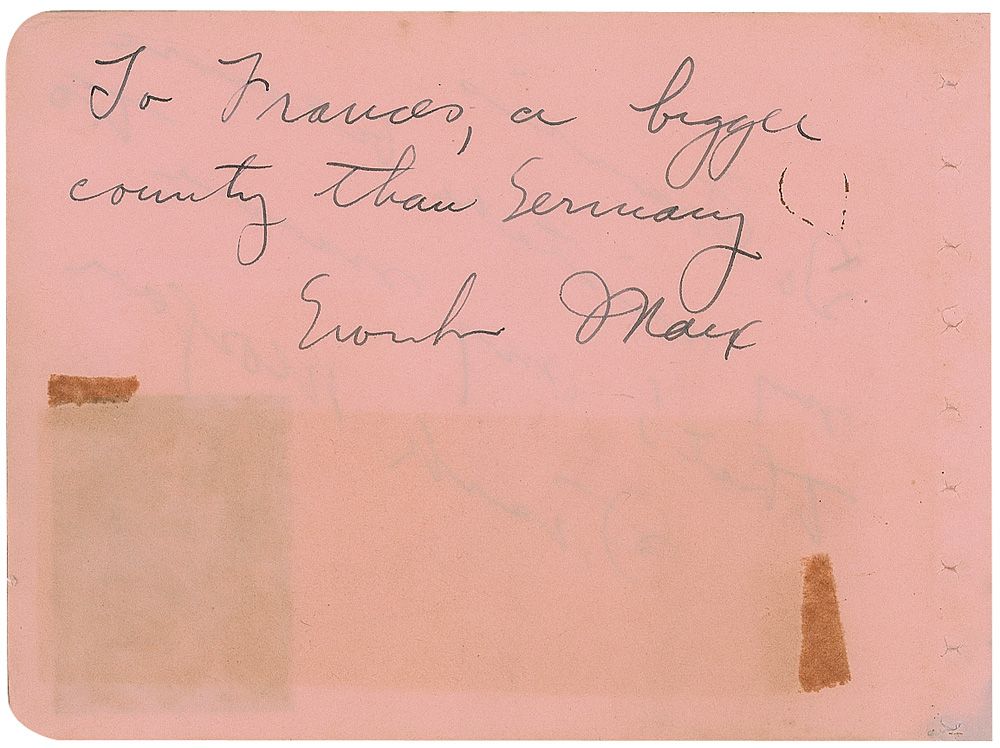 To Frances, a bigger
county than Germany
Groucho Marx